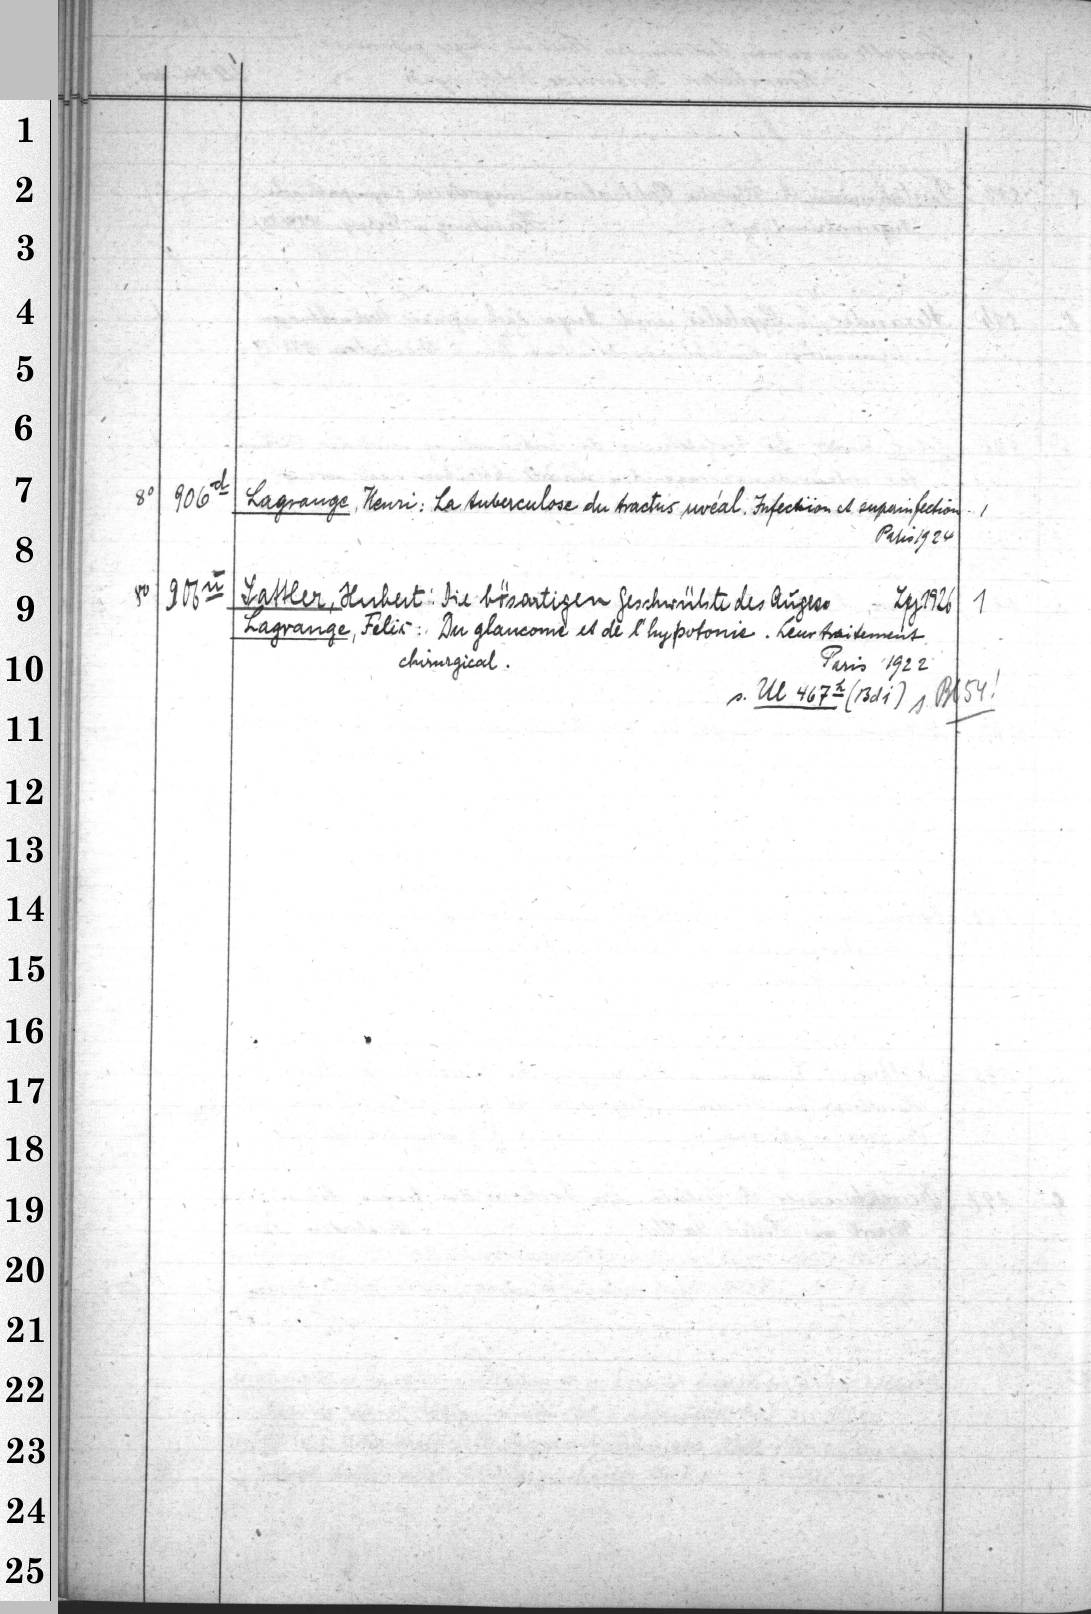 1
2
3
4
5
6
7
8° 906d Lagrange, Henri: La tuberculose du tractus uvéal. Infection et superinfection 1
8
Paris 1924
9
8° 906 Lattler, Hubert: Die bösartigen Geschwülste des Auges Lpz 1926 1
Lagrange, Felix: Du glaucome et de l'hypotonie. Leur traitement
10
chirurgical. Paris 1922
s. Ul 467 (Bdi) s. Bl 54!
11
12
13
14
15
16
17
18
19
20
21
22
23
24
25